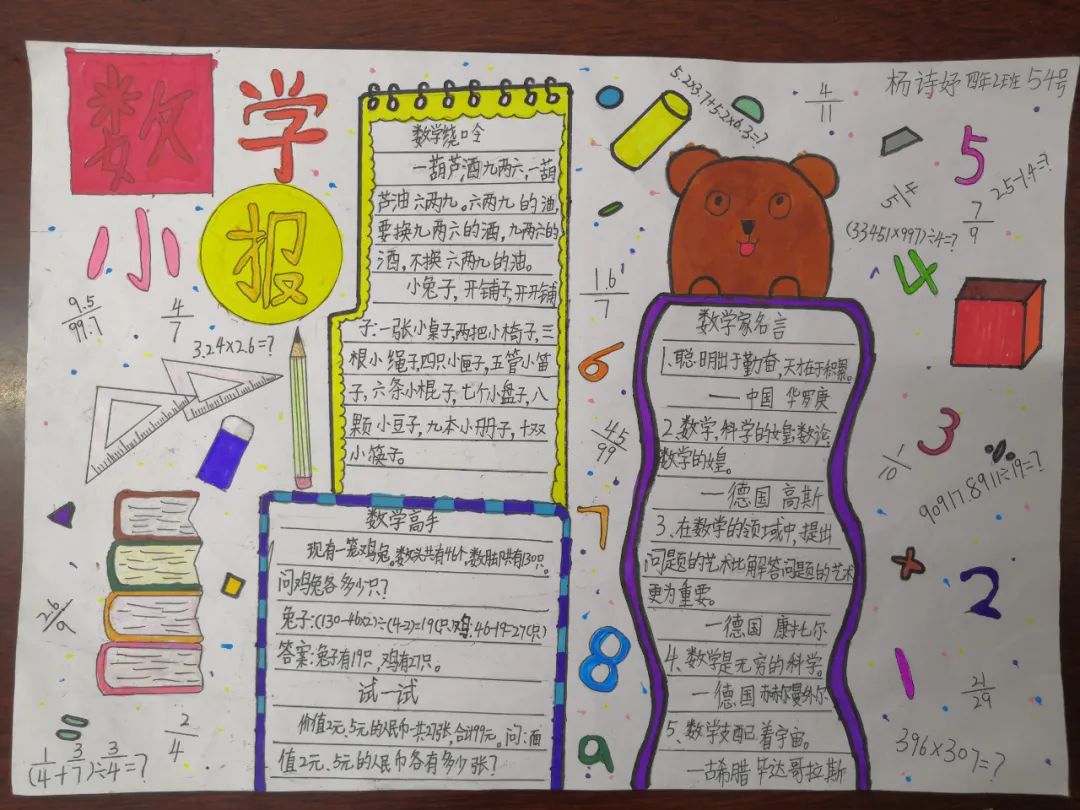 数学
小报
杨诗妤 四年2班 54号
数学绕口令
一葫芦酒九两六,一葫
芦油六两九。六两九的油,
要换九两六的酒,九两六的
酒,不换六两九的油。
小兔子,开铺子,开开铺
子:一张小桌子,两把小椅子,三
根小绳子,四只小匣子,五管小笛
子,六条小棍子,七个小盘子,八
颗小豆子,九本小册子,十双
小筷子。
数学高手
现有一笼鸡兔。数头共有46个,数脚共有130只。
问鸡兔各多少只?
兔子:(130-46×2)÷(4-2)=19(只)鸡:46-19=27(只)
答案:兔子有19只,鸡有27只。
试一试
价值2元、5元的人民币一共27张,合计99元。问:面
值2元、5元的人民币各有多少张?
数学家名言
1、聪明出于勤奋,天才在于积累。
——中国 华罗庚
2、数学,科学的女皇;数论,
数学的女皇。
—德国 高斯
3、在数学的领域中,提出
问题的艺术比解答问题的艺术
更为重要。
—德国 康托尔
4、数学是无穷的科学。
—德国 赫尔曼外尔
5、数学支配着宇宙。
—古希腊 毕达哥拉斯
9.5/99.7
4/7
3.24×2.6=?
2.6/9
2/4
(1/4+3/7)÷3/4=?
5.2×3.7+5.2×6.3=?
4/11
1.6/7
45/99
6
7
8
9
5
25-1.4=?
5/4
7/9
(33451×997)÷4=?
4
3
1/10
90917.8911÷19=?
2
1
21/29
396×307=?